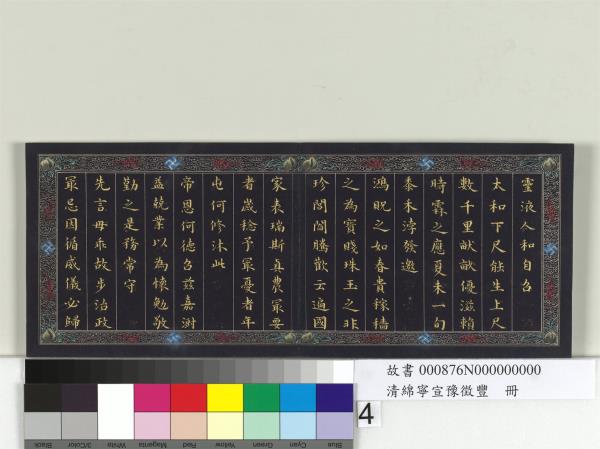 靈液人和自召
太和下尺能生上尺
數千里畎畝優滋賴
時霖之應夏末一旬
黍禾浡發邀
鴻貺之如春貴稼穡
之為寶賤珠玉之非
珍閭閻騰歡云遍國
家表瑞斯真農最要
者歲稔予最憂者年
屯何修沐此
帝恩何德召茲嘉澍
益兢業以為懷勉敬
勤之是務常守
先言毋乖故步治政
最忌因循威儀必歸
故書 000876N000000000
清綿寧宣豫徵豐 冊
4
Blue Cyan Green Yellow Red Magenta White 3/Color Black